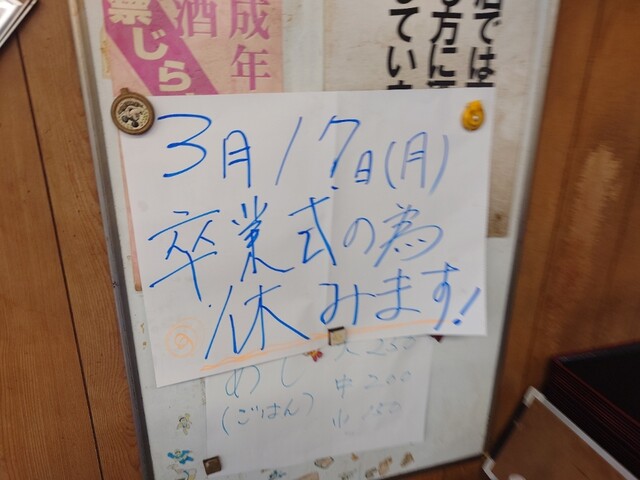 成年
酒
禁じら
店では
る方に
してい
3月17日(月)
卒業式の為
休みます!
めし
(ごはん)
大250
中200
小150